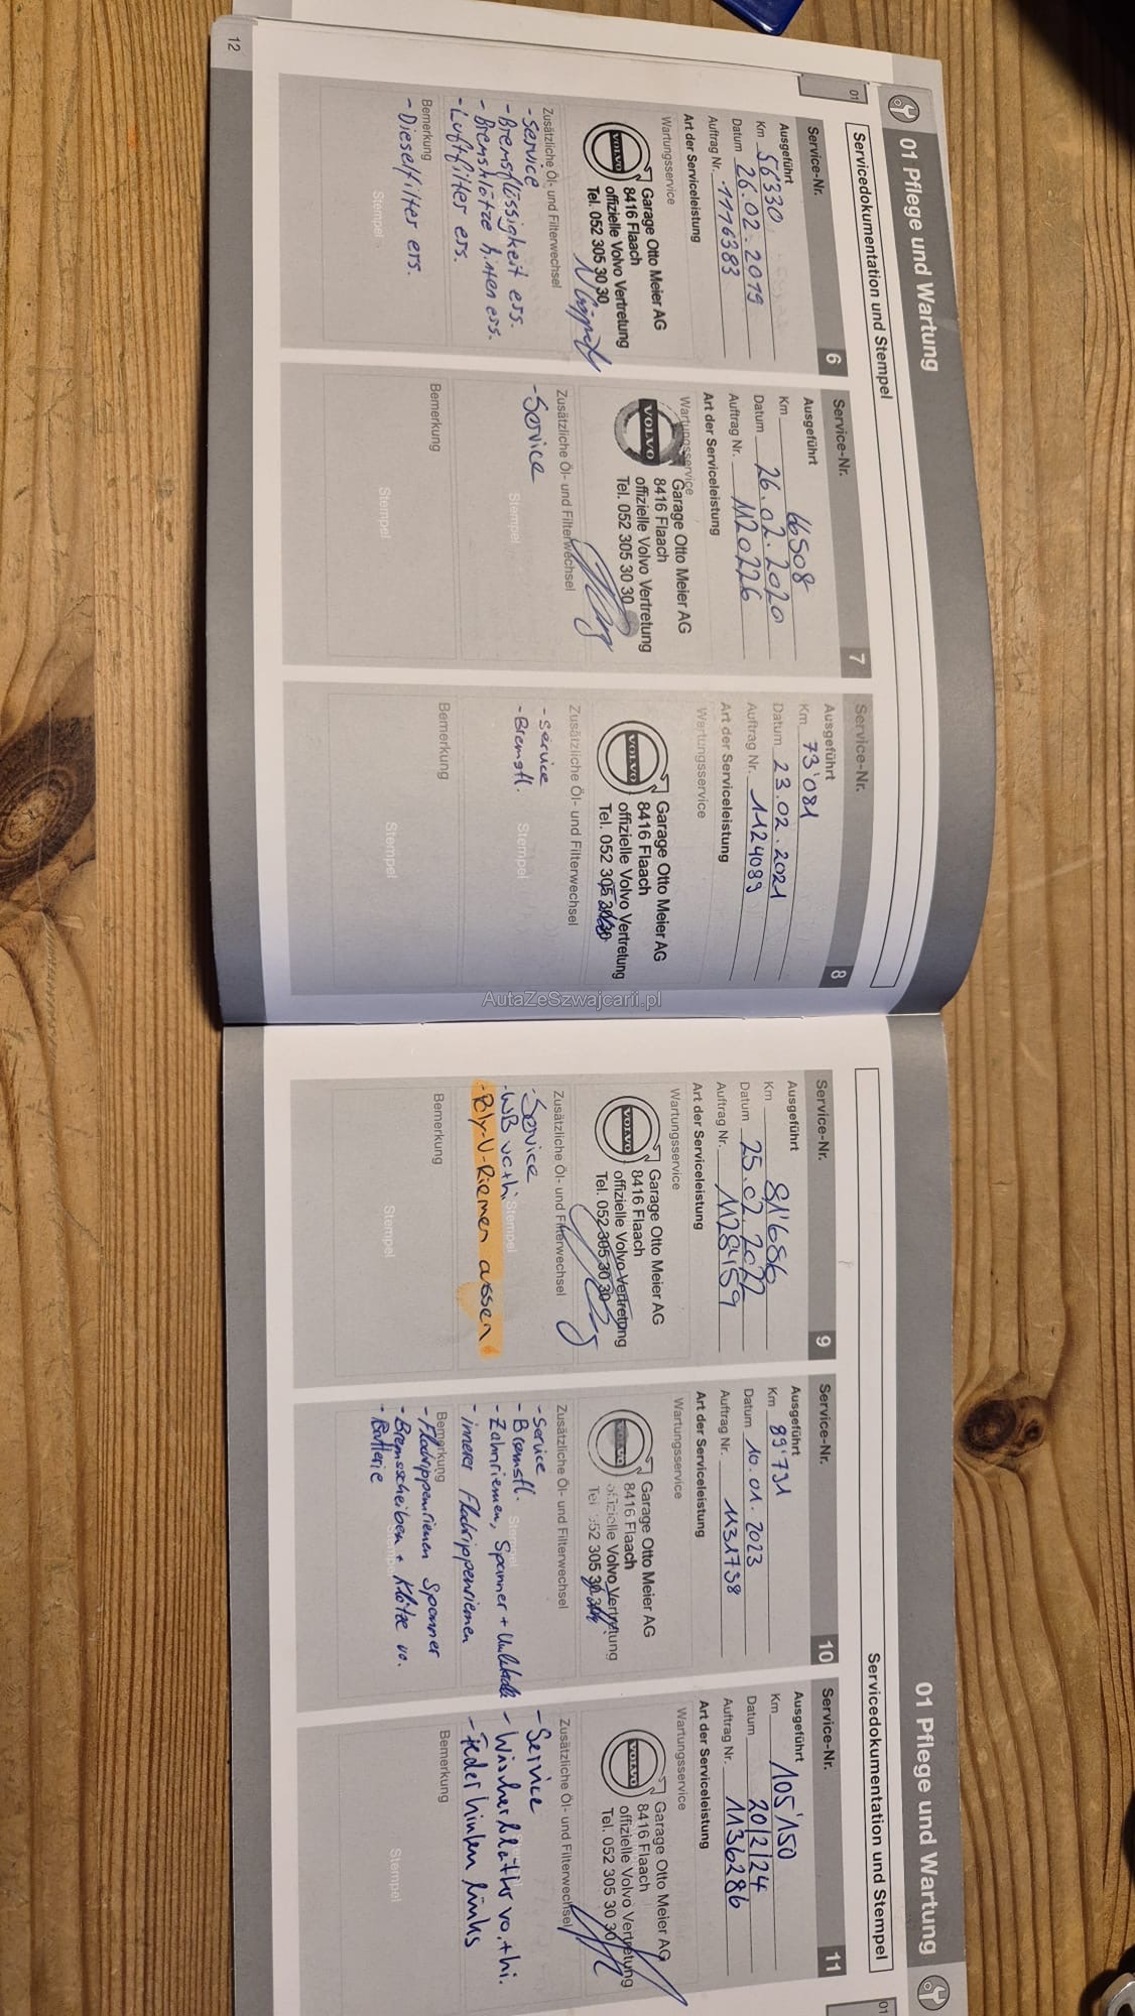 01 Pflege und Wartung
01
Servicedokumentation und Stempel
Service-Nr. 6
Ausgeführt
Km 56'330
Datum 26.02.2019
Auftrag Nr. 1116383
Art der Serviceleistung
Wartungsservice
VOLVO
Garage Otto Meier AG
8416 Flaach
offizielle Volvo Vertretung
Tel. 052 305 30 30
Zusätzliche Öl- und Filterwechsel
- Service
- Bremsflüssigkeit ers.
- Bremsklötze hinten ers.
- Luftfilter ers.
Bemerkung
- Dieselfilter ers.
Stempel
Service-Nr. 7
Ausgeführt
Km 66508
Datum 26.02.2020
Auftrag Nr. 1120226
Art der Serviceleistung
Wartungsservice
VOLVO
Garage Otto Meier AG
8416 Flaach
offizielle Volvo Vertretung
Tel. 052 305 30 30
Zusätzliche Öl- und Filterwechsel
- Service
Stempel
Bemerkung
Stempel
Service-Nr. 8
Ausgeführt
Km 73'081
Datum 23.02.2021
Auftrag Nr. 1124089
Art der Serviceleistung
Wartungsservice
VOLVO
Garage Otto Meier AG
8416 Flaach
offizielle Volvo Vertretung
Tel. 052 305 30 30
Zusätzliche Öl- und Filterwechsel
- Service
- Bremsfl.
Stempel
Bemerkung
Stempel
12
AutaZeSzwajcarii.pl
01 Pflege und Wartung
01
Servicedokumentation und Stempel
Service-Nr. 9
Ausgeführt
Km 81'686
Datum 25.02.2022
Auftrag Nr. 1128159
Art der Serviceleistung
Wartungsservice
VOLVO
Garage Otto Meier AG
8416 Flaach
offizielle Volvo Vertretung
Tel. 052 305 30 30
Zusätzliche Öl- und Filterwechsel
- Service
- WB vo+hi
Stempel
- Poly-V-Riemen aussen
Bemerkung
Stempel
Service-Nr. 10
Ausgeführt
Km 89'731
Datum 10.01.2023
Auftrag Nr. 1131738
Art der Serviceleistung
Wartungsservice
VOLVO
Garage Otto Meier AG
8416 Flaach
offizielle Volvo Vertretung
Tel. 052 305 30 30
Zusätzliche Öl- und Filterwechsel
- Service
- Bremsfl.
- Zahnriemen, Spanner +
- innerer Flachrippenriemen
Bemerkung
- Flachrippenriemen Spanner
- Bremsscheiben + Klötze vo.
- Batterie
Service-Nr. 11
Ausgeführt
Km 105'150
Datum 20/2/24
Auftrag Nr. 1136286
Art der Serviceleistung
Wartungsservice
VOLVO
Garage Otto Meier AG
8416 Flaach
offizielle Volvo Vertretung
Tel. 052 305 30 30
Zusätzliche Öl- und Filterwechsel
- Service
- Wischerblätter vo.+hi.
- Feder hinten links
Bemerkung
Stempel